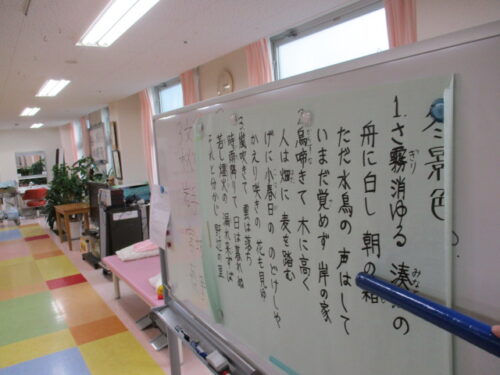 冬景色
1.さ霧消ゆる 湊の
ぎり
みな
舟に白し 朝の霜
ただ水鳥の 声はして
いまだ覚めず 岸の家
2.烏啼きて 木に高く
人は畑に 麦を踏む
げに小春日の のどけしや
かえり咲きの 花も見ゆ
3.嵐吹きて 雲は落ち
時雨降りて 日は暮れぬ
若し燈火の 漏れ来ずば
それと分かじ 野辺の里